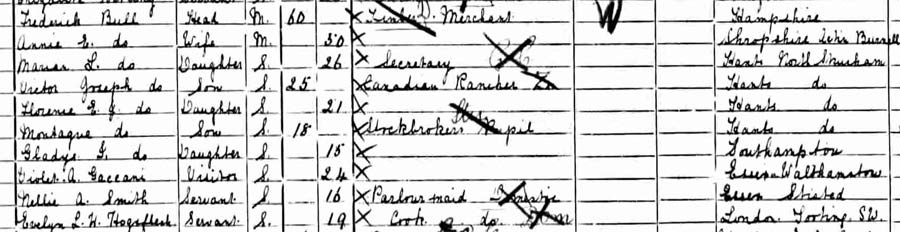 Frederick Bull Head M. 60 Timber Merchant Hampshire
Annie E. do Wife M. 50 Shropshire
Marian L. do Daughter S. 26 Secretary Hants North
Victor Joseph do Son S. 25 Canadian Rancher Hants do
Florence E. J. do Daughter S. 21 Hants do
Montague do Son S. 18 Stockbrokers Pupil Hants do
Gladys G. do Daughter S. 15 Southampton
Violet A. Gaccani Visitor S. 24 Essex Walthamstow
Nellie A. Smith Servant S. 16 Parlourmaid Domestic Essex Stisted
Evelyn L. W. Servant S. 19 Cook do London Tooting S.W.